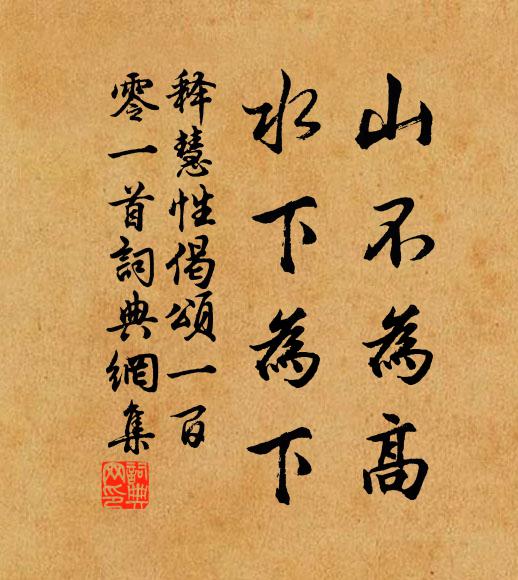 山不為高
水下為下
释慧性偈頌一百
零一首詞典網集
詞典网印